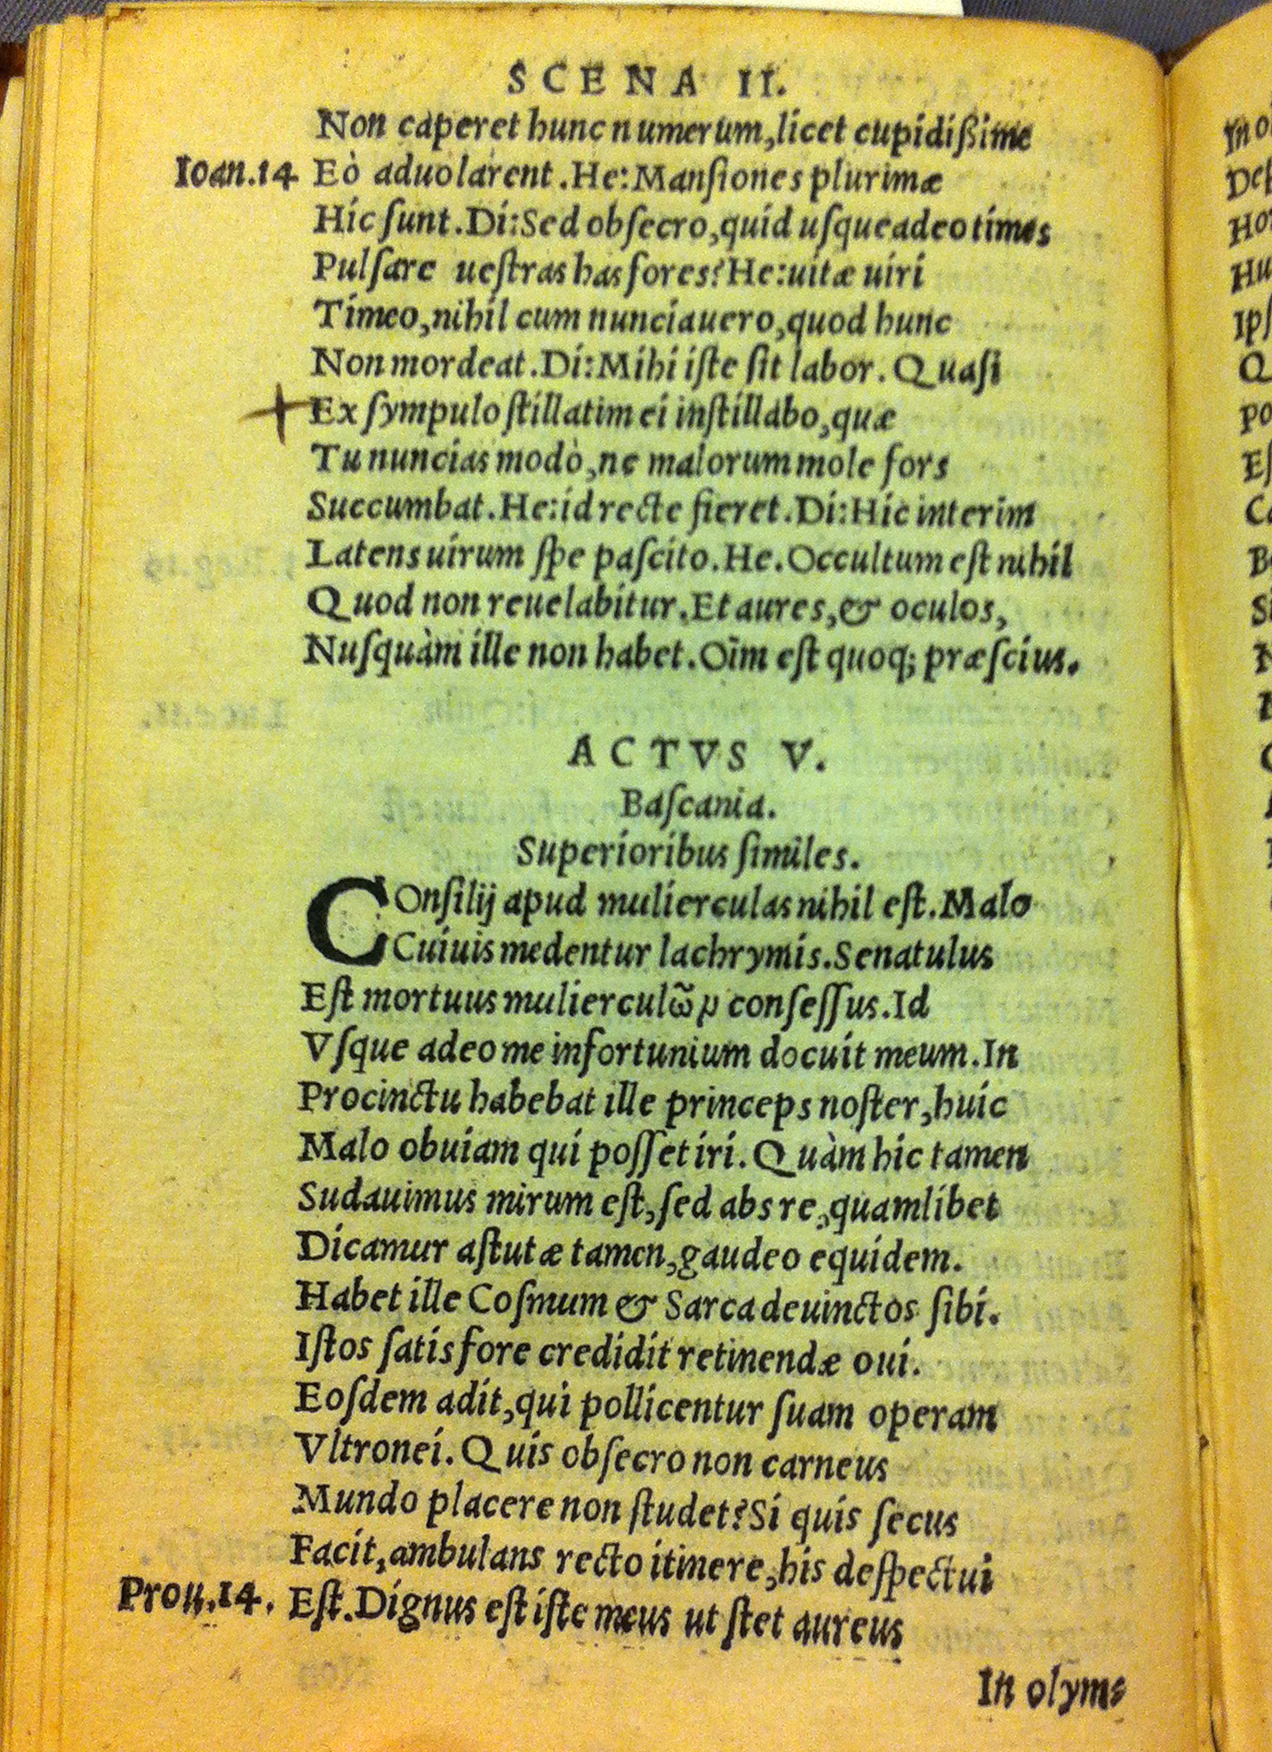 SCENA II.
Non caperet hunc numerum, licet cupidißime
Ioan.14 Eò aduolarent. He: Mansiones plurimæ
Hic sunt. Di: Sed obsecro, quid usqueadeo times
Pulsare uestras has fores? He: uitæ uiri
Timeo, nihil cum nunciauero, quod hunc
Non mordeat. Di: Mihi iste sit labor. Quasi
Ex sympulo stillatim ei instillabo, quæ
Tu nuncias modò, ne malorum mole fors
Succumbat. He: id recte fieret. Di: Hic interim
Latens uirum spe pascito. He. Occultum est nihil
Quod non reuelabitur. Et aures, & oculos,
Nusquàm ille non habet. Oīm est quoq; præscius.
ACTVS V.
Bascania.
Superioribus similes.
COnsilij apud mulierculas nihil est. Malo
Cuiuis medentur lachrymis. Senatulus
Est mortuus consessus. Id
Vsque adeo me infortunium docuit meum. In
Procinctu habebat ille princeps noster, huic
Malo obuiam qui posset iri. Quàm hic tamen
Sudauimus mirum est, sed abs re, quamlibet
Dicamur astutæ tamen, gaudeo equidem.
Habet ille Cosmum & Sarca deuinctos sibi.
Istos satis fore credidit retinendæ oui.
Eosdem adit, qui pollicentur suam operam
Vltronei. Quis obsecro non carneus
Mundo placere non studet? Si quis secus
Facit, ambulans recto itinere, his despectui
Prou.14. Est. Dignus est iste meus ut stet aureus
In olym
In